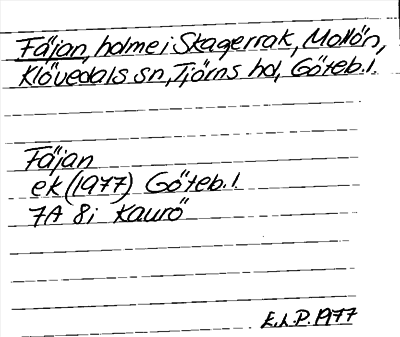 Fäjan, holme i Skagerrak, Mollön,
Klövedals sn, Tjörns hd, Göteb. l.
Fäjan
ek (1977) Göteb. l.
7A 8i Kaurö
E.L.P. 1977